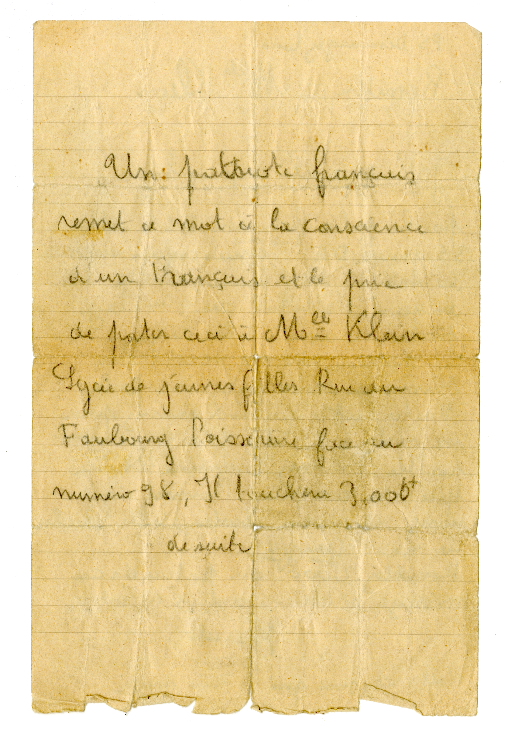 Un patriote français
remet ce mot à la conscience
d'un Français et le prie
de porter ceci à Mlle Klein
Lycée de jeunes filles Rue du
Faubourg Poissonnière face au
numéro 98, Il touchera 3,000f
de suite